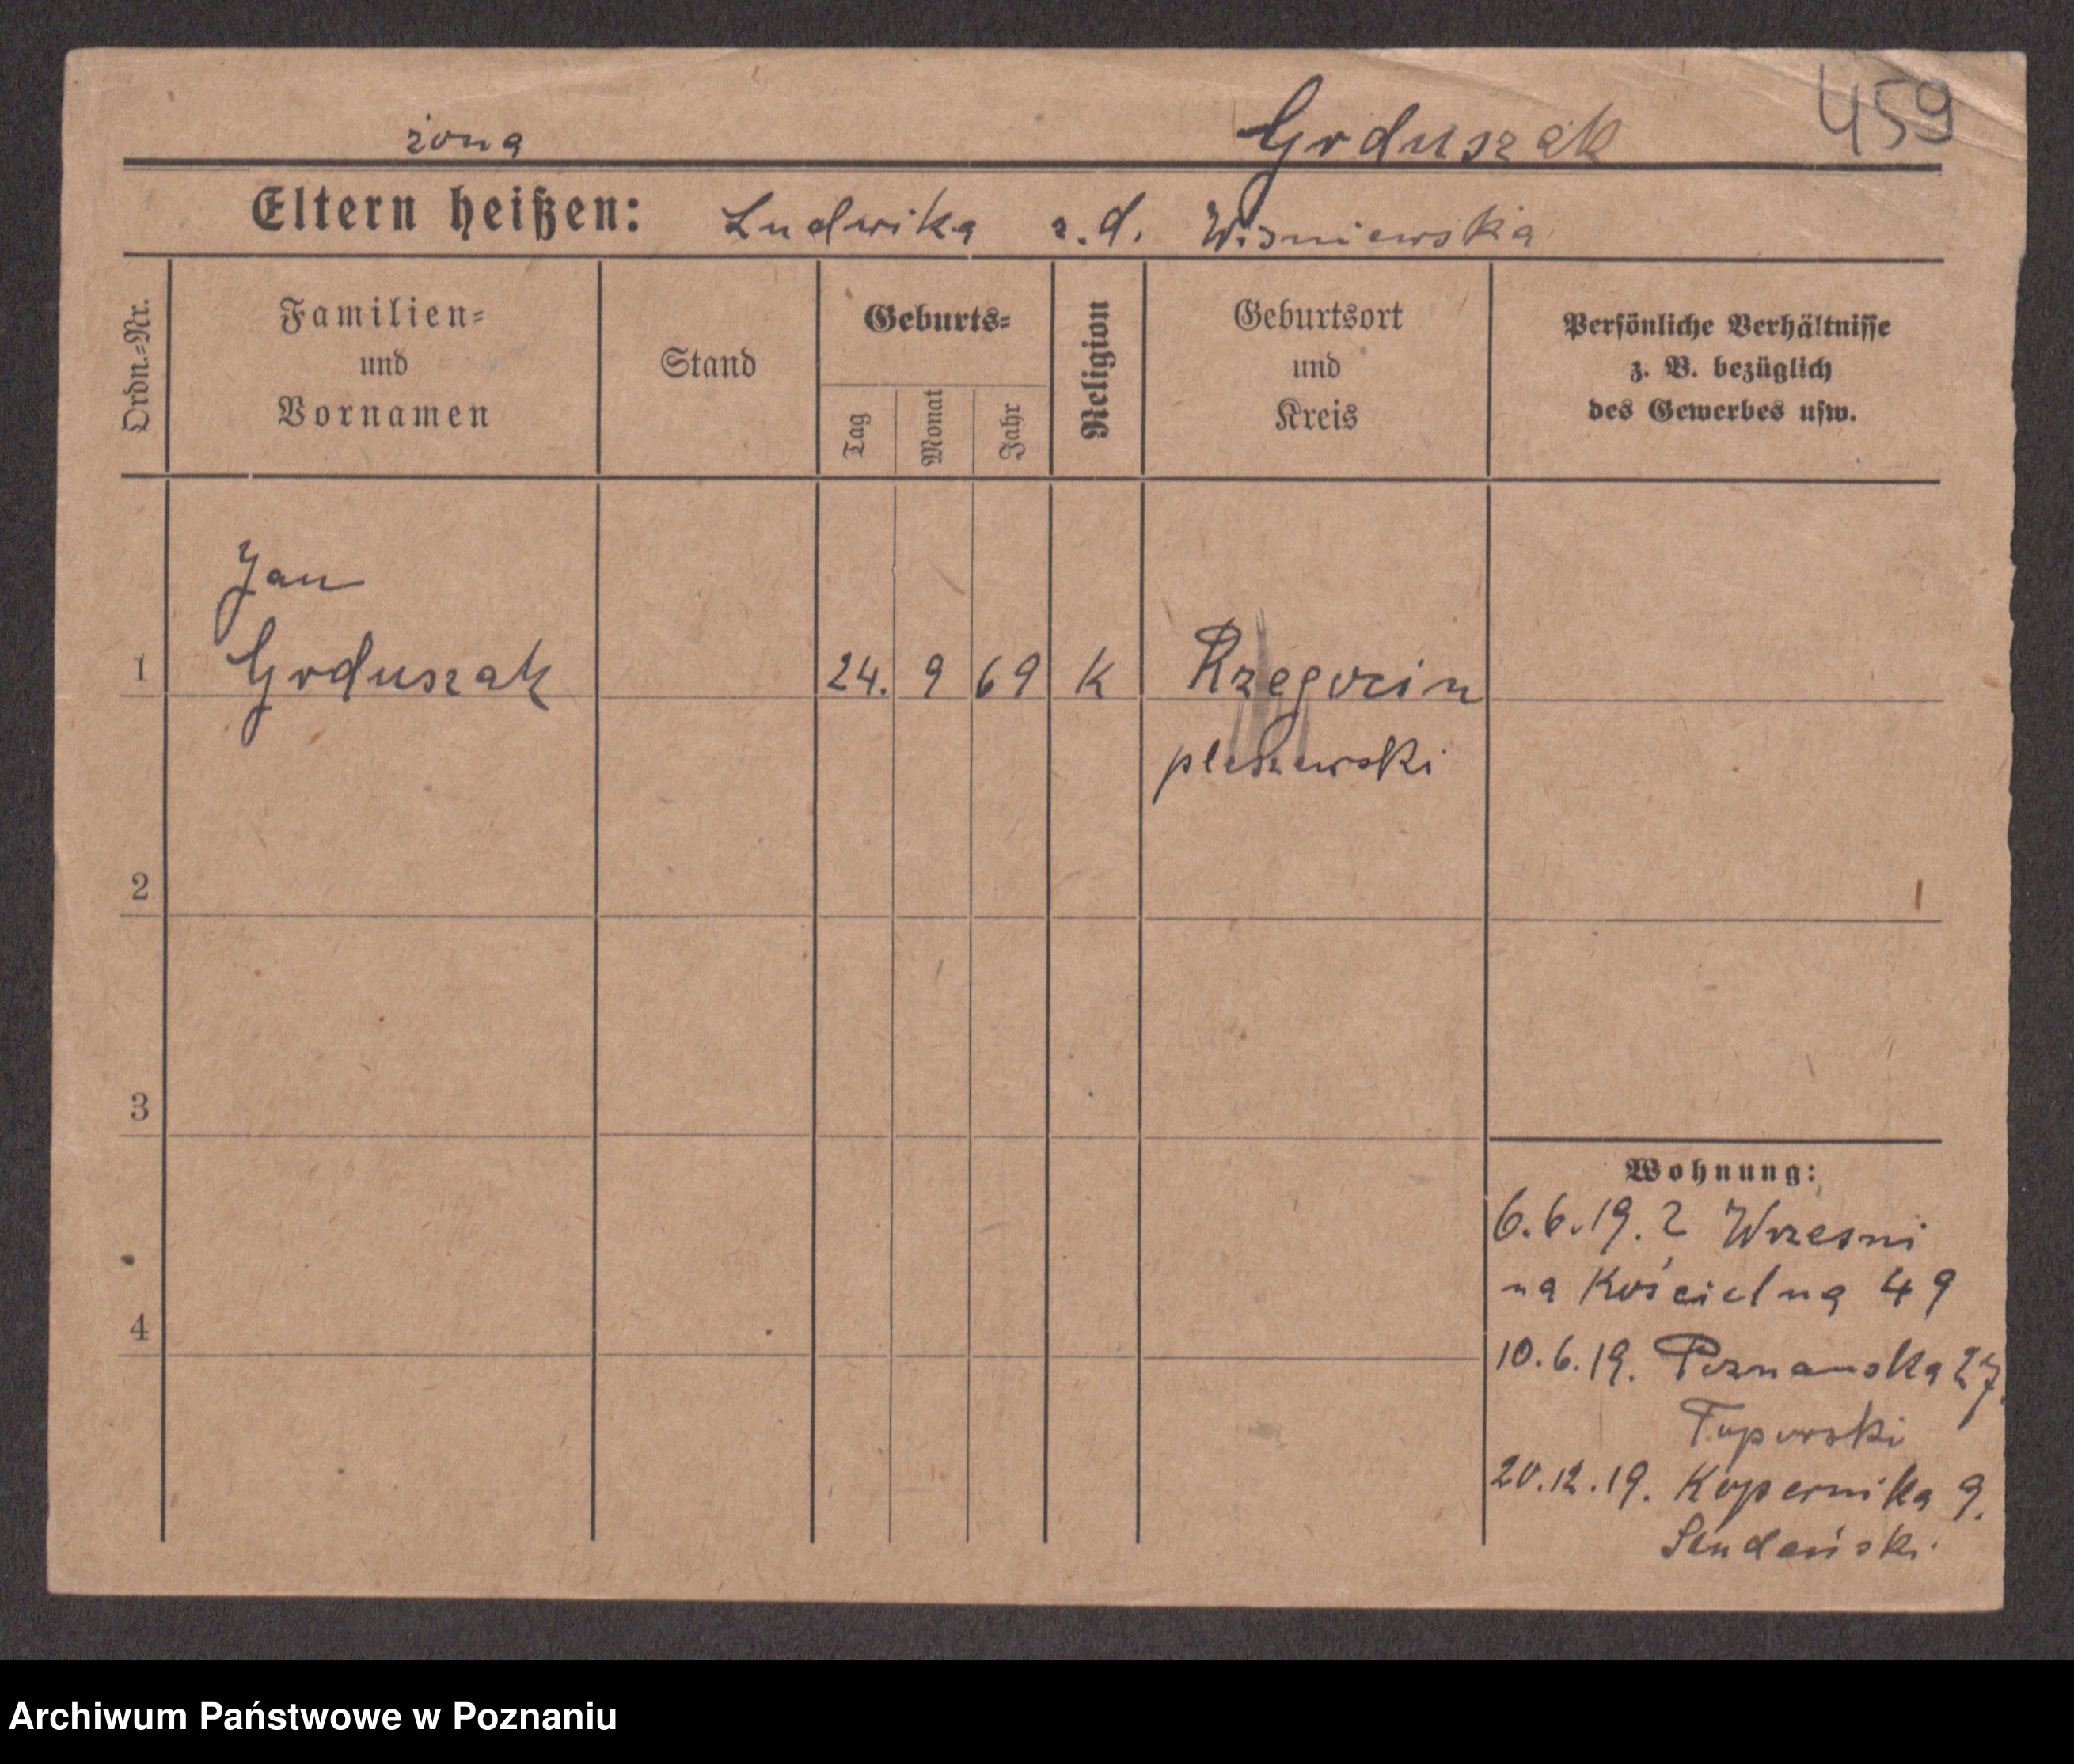 459
żona Goduszak
Eltern heißen: Ludwika z.d. Wiśniewska
Ordn.-Nr.
Familien- und Vornamen
Stand
Geburts-
Tag
Monat
Jahr
Religion
Geburtsort und Kreis
Persönliche Verhältnisse
z. B. bezüglich
des Gewerbes usw.
Jan
1 Goduszak 24. 9 69 K Rzegocin
pleszewski
2
3
4
Wohnung:
6.6.19. z Wrzesni
na Kościelną 49
10.6.19. Poznanska 27.
Toporski
20.12.19. Kopernika 9.
Archiwum Państwowe w Poznaniu